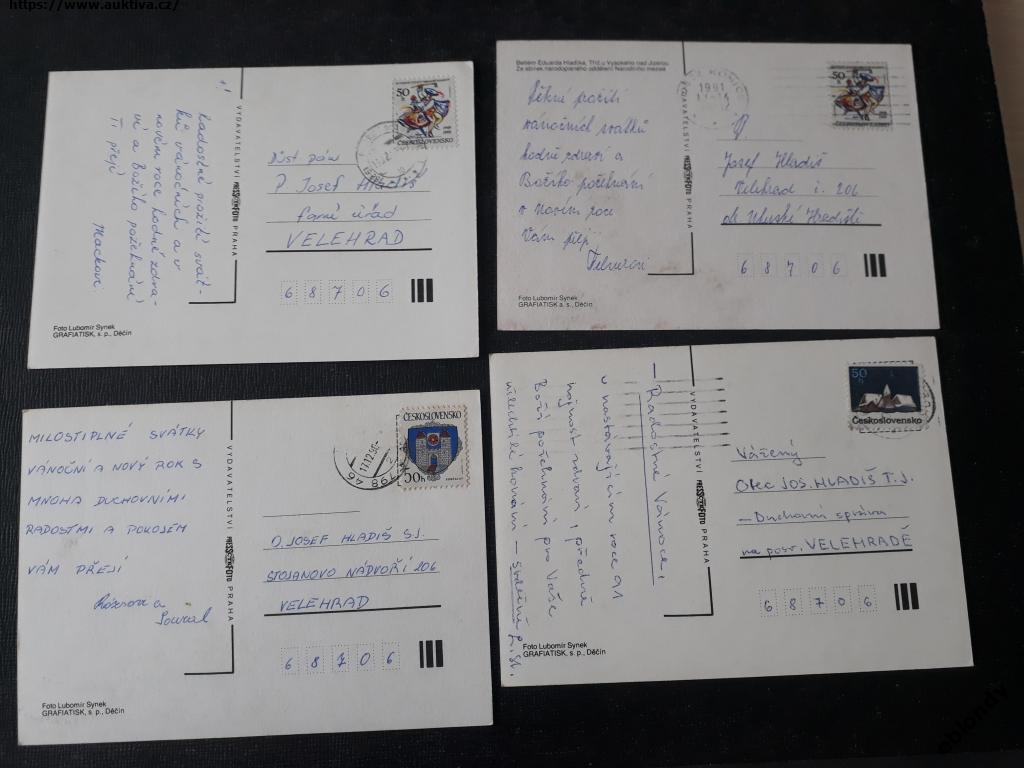 https://www.auktiva.cz/
Radostné prožití svát-
ků vánočních a v
novém roce hodně zdra-
ví a Božího požehnání
Ti přejí
Mackovi
VYDAVATELSTVÍ PRESSFOTO PRAHA
50
ČESKOSLOVENSKO
Důst pán
P. Josef Hladiš
farní úřad
VELEHRAD
68706
Foto Lubomír Synek
GRAFIATISK, s. p., Děčín
Betlém Eduarda Hladíka, Tříč u Vysokého nad Jizerou
Ze sbírek národopisného oddělení Národního muzea
Pěkné prožití
vánočních svátků
hodně zdraví a
Božího požehnání
v novém roce
Vám přejí
VYDAVATELSTVÍ PRESSFOTO PRAHA
1991
50
Josef Hladiš
Velehrad č. 206
68706
Foto Lubomír Synek
GRAFIATISK a. s., Děčín
MILOSTIPLNÉ SVÁTKY
VÁNOČNÍ A NOVÝ ROK S
MNOHA DUCHOVNÍMI
RADOSTMI A POKOJEM
VÁM PŘEJÍ
VYDAVATELSTVÍ PRESSFOTO PRAHA
17.12.90
798 46
ČESKOSLOVENSKO
50h
O. JOSEF HLADIŠ S.J.
STOJANOVO NÁDVOŘÍ 206
VELEHRAD
68706
Foto Lubomír Synek
GRAFIATISK, s. p., Děčín
– Radostné Vánoce,
v nastávajícím roce 91
hojnost zdraví i předně
Boží požehnání pro Vaše
VYDAVATELSTVÍ PRESSFOTO PRAHA
50
h
Československo
Vážený
Otec JOS. HLADIŠ T.J.
– Duchovní správa
na posv. VELEHRADĚ
68706
Foto Lubomír Synek
GRAFIATISK, s. p., Děčín
oblondy